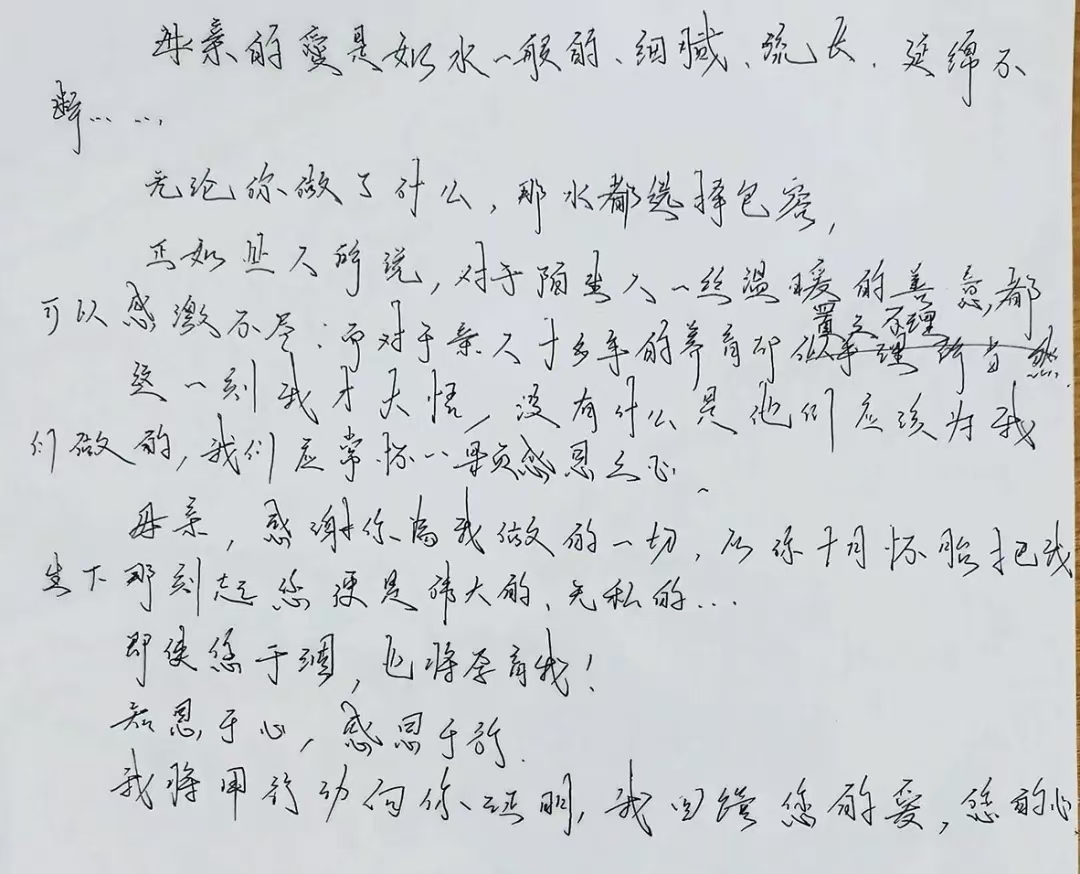 母亲的爱是如水一般的、细腻、流长、延绵不
断……
无论你做了什么，那水都选择包容，
正如世人所说，对于陌生人一丝温暖的善意，都
可以感激不尽；而对于亲人十多年的养育却置之不理
这一刻我才大悟，没有什么是他们应该为我
们做的，我们应常怀一颗感恩之心、
母亲，感谢你为我做的一切，从你十月怀胎把我
生下那刻起您便是伟大的、无私的…
即使您干涸，也将孕育我！
知恩于心，感恩于行.
我将用行动向你证明，我回馈您的爱，您的心